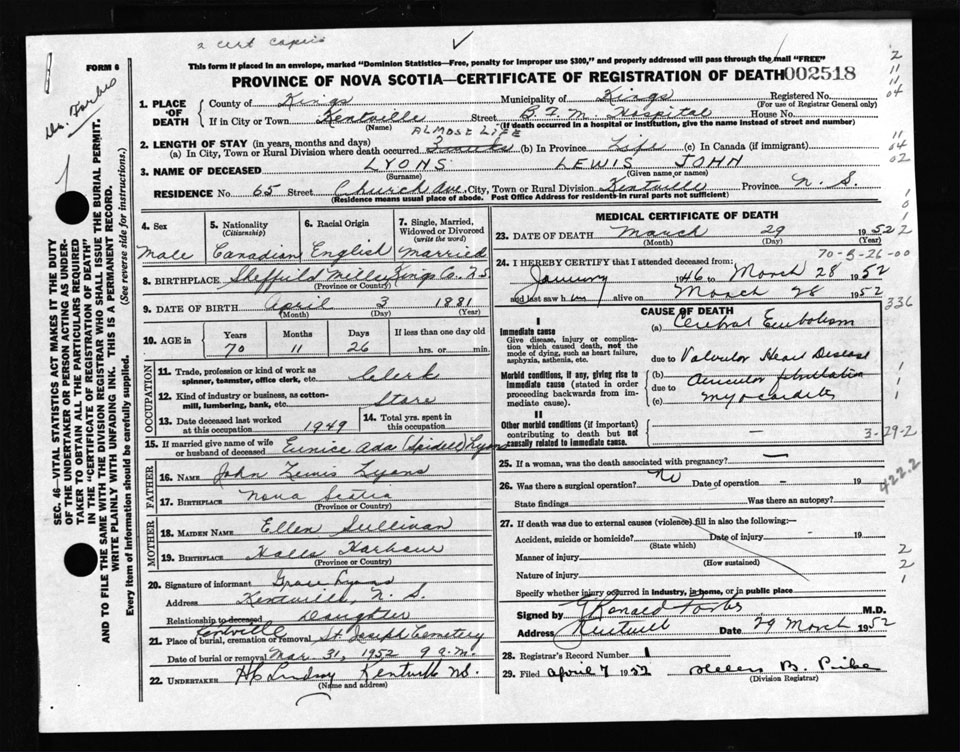 2 cert copies
FORM 6
This form if placed in an envelope, marked "Dominion Statistics—Free, penalty for improper use $300," and properly addressed will pass through the mail "FREE"
PROVINCE OF NOVA SCOTIA—CERTIFICATE OF REGISTRATION OF DEATH 002518
Dr. Forbes
SEC. 46—VITAL STATISTICS ACT MAKES IT THE DUTY
OF THE UNDERTAKER OR PERSON ACTING AS UNDER-
TAKER TO OBTAIN ALL THE PARTICULARS REQUIRED
IN THE "CERTIFICATE OF REGISTRATION OF DEATH"
AND TO FILE THE SAME WITH THE DIVISION REGISTRAR WHO SHALL ISSUE THE BURIAL PERMIT.
WRITE PLAINLY WITH UNFADING INK. THIS IS A PERMANENT RECORD.
Every item of information should be carefully supplied. (See reverse side for instructions.)
1. PLACE OF DEATH County of Kings Municipality of Kings Registered No.
(For use of Registrar General only)
If in City or Town Kentville Street B. F. M. Hospital House No.
(Name) (If death occurred in a hospital or institution, give the name instead of street and number)
ALMOST LIFE
2. LENGTH OF STAY (in years, months and days)
(a) In City, Town or Rural Division where death occurred 3 weeks (b) In Province Life (c) In Canada (if immigrant)
3. NAME OF DECEASED LYONS LEWIS JOHN
(Surname) (Given name or names)
RESIDENCE No. 65 Street Church Ave. City, Town or Rural Division Kentville Province N. S.
(Residence means usual place of abode. Post Office Address for residents in rural parts not sufficient)
4. Sex 5. Nationality (Citizenship) 6. Racial Origin 7. Single, Married, Widowed or Divorced (write the word)
Male Canadian English Married
8. BIRTHPLACE Sheffield Mills Kings Co. N.S.
(Province or Country)
9. DATE OF BIRTH April 3 1881
(Month) (Day) (Year)
10. AGE in Years Months Days If less than one day old
70 11 26 hrs. or min.
OCCUPATION
11. Trade, profession or kind of work as spinner, teamster, office clerk, etc. Clerk
12. Kind of industry or business, as cotton-mill, lumbering, bank, etc. Store
13. Date deceased last worked at this occupation 1949 14. Total yrs. spent in this occupation
15. If married give name of wife or husband of deceased Eunice Ada (Spidell) Lyons
FATHER
16. NAME John Lewis Lyons
17. BIRTHPLACE Nova Scotia
(Province or Country)
MOTHER
18. MAIDEN NAME Ellen Sullivan
19. BIRTHPLACE Halls Harbour
(Province or Country)
20. Signature of informant Grace Lyons
Address Kentville, N. S.
Relationship to deceased Daughter
Kentville
21. Place of burial, cremation or removal St. Joseph Cemetery
Date of burial or removal Mar. 31, 1952 9 a.m.
22. UNDERTAKER Lindsay Kentville NS.
(Name and address)
MEDICAL CERTIFICATE OF DEATH
23. DATE OF DEATH March 29 1952
(Month) (Day) (Year)
70-5-26-00
24. I HEREBY CERTIFY that I attended deceased from:
January 1946 to March 28 1952
and last saw him alive on March 28 1952
CAUSE OF DEATH
I
Immediate cause
Give disease, injury or complication which caused death, not the mode of dying, such as heart failure, asphyxia, asthenia, etc.
(a) Cerebral Embolism
due to Valvular Heart Disease
Morbid conditions, if any, giving rise to immediate cause (stated in order proceeding backwards from immediate cause).
(b) auricular fibrillation
due to
(c) myocarditis
II
Other morbid conditions (if important) contributing to death but not causally related to immediate cause.
336
3-29-2
422.2
25. If a woman, was the death associated with pregnancy? —
26. Was there a surgical operation? No Date of operation 19
State findings Was there an autopsy?
27. If death was due to external causes (violence) fill in also the following:
Accident, suicide or homicide? Date of injury 19
(State which)
Manner of injury
(How sustained)
Nature of injury
Specify whether injury occurred in industry, in home, or in public place
Signed by G Ronald Forbes M.D.
Address Kentville Date 29 March 1952
28. Registrar's Record Number 1
29. Filed April 7 1952 Helen B. Pike
(Division Registrar)